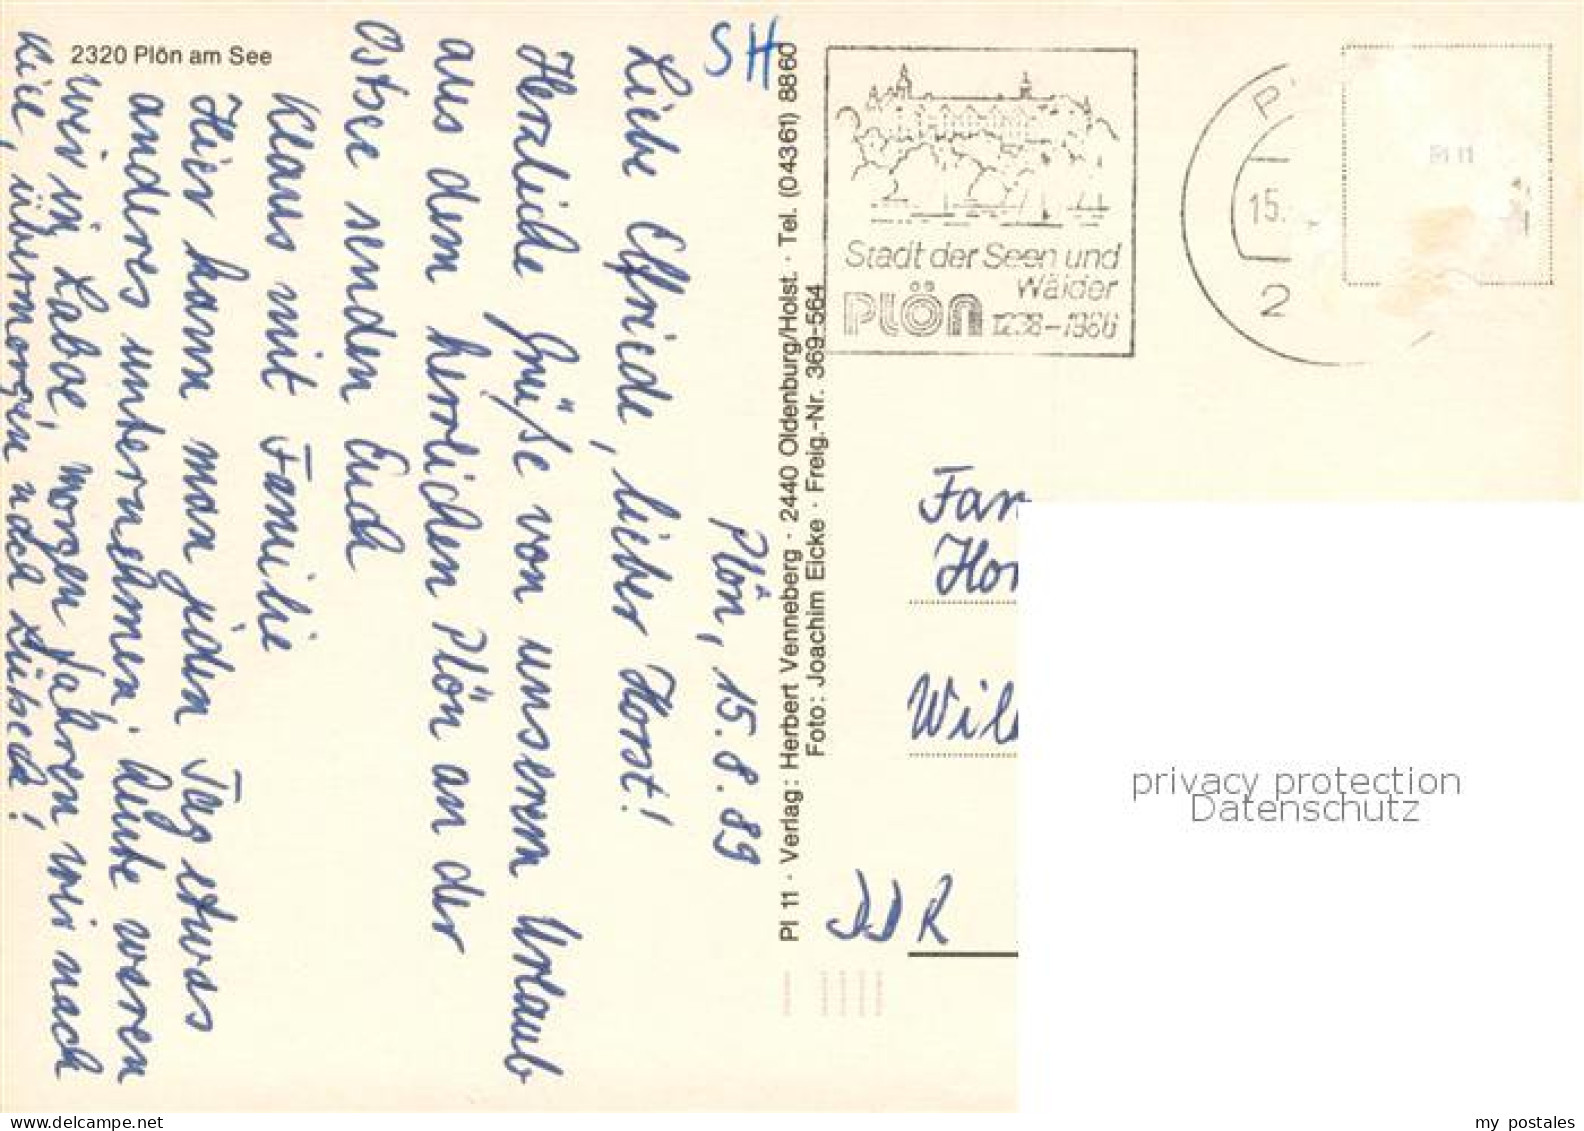 2320 Plön am See
SH
Plön, 15.8.89
Liebe Elfriede, lieber Horst!
Herzliche Grüße von unserem Urlaub
aus dem herrlichen Plön an der
Ostsee senden Euch
Klaus mit Familie
Hier kann man jeden Tag etwas
anderes unternehmen. Heute waren
wir in Laboe, morgen fahren wir nach
Kiel, übermorgen nach Lübeck!
Pl 11 · Verlag: Herbert Venneberg · 2440 Oldenburg/Holst. · Tel. (04361) 8860
Foto: Joachim Eicke · Freig.-Nr. 369-564
Stadt der Seen und
Wälder
PLÖN 1236-1986
P
15.
2
Pl 11
Fam
Hor
Wil
DDR
privacy protection
Datenschutz
my postales
www.delcampe.net